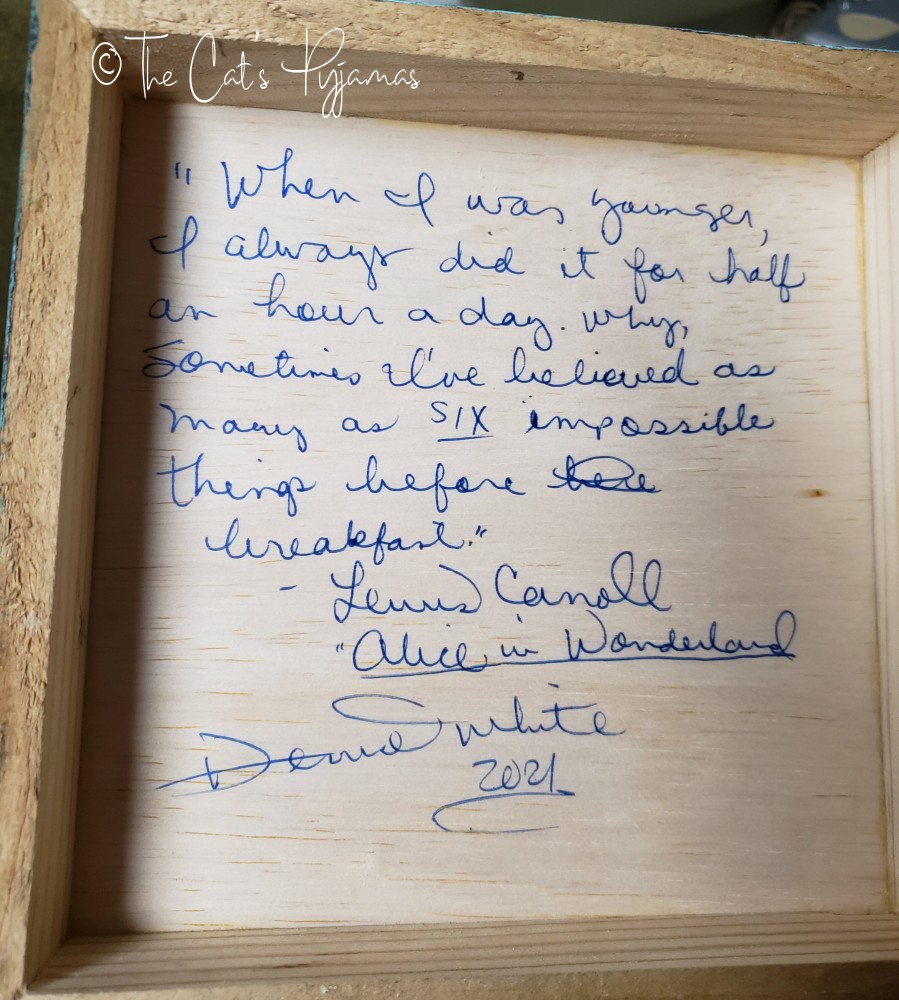 © The Cat's Pyjamas
"When I was younger,
I always did it for half
an hour a day. Why,
Sometimes I've believed as
many as SIX impossible
things before
breakfast."
- Lewis Carroll
"Alice in Wonderland
White
2021